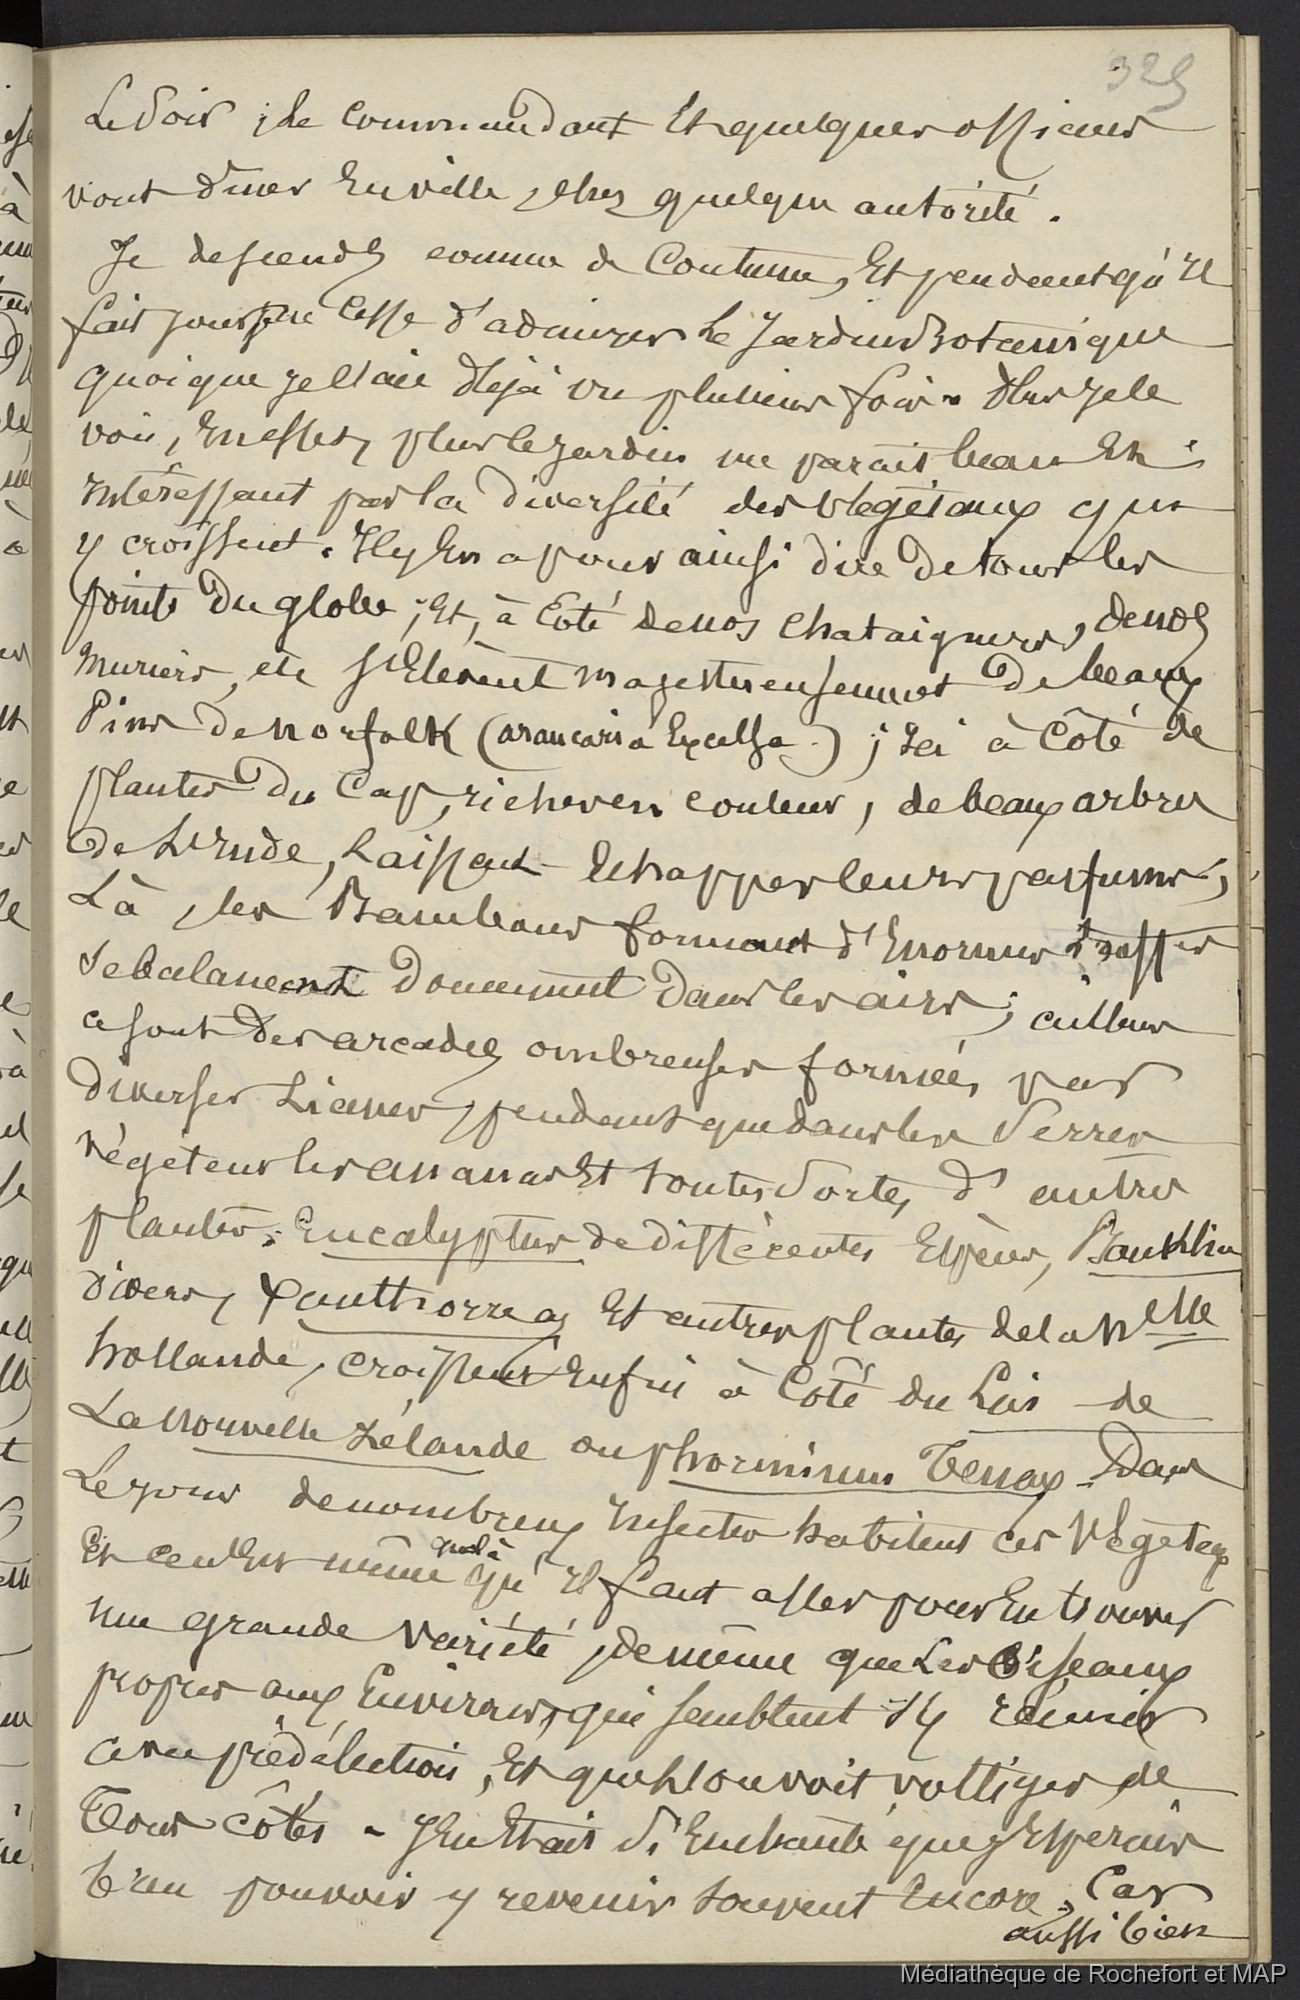 325
Le Soir, le commandant Et quelques officiers
vont diner En ville, chez quelque autorité.
Je descends comme de Coutume, Et pendant qu'Il
fait jour je ne Cesse d'admirer Le Jardin Botanique
quoique je l'aie déjà vu plusieurs fois. Plus je le
vois, En effet, plus le jardin me parait beau Et
Intéressant par la diversité des Végétaux qui
y croissent. Il y En a pour ainsi dire de tous les
points Du globe ; Et, à Côté de nos Chataigners, de nos
Muriers, etc S'Elèvent Majestueusement De beaux
Pins de norfolk (araucaria Excelsa) ; Ici à Côté de
plantes Du Cap, riches en couleur, de beaux arbres
de L'Inde, Laissant Echapper leurs parfums ;
Là, les Bambous formant d'Enormes touffes
Se balancent Doucement Dans les airs ; ailleurs
ce sont Des arcades ombreuses formées par
Diverses Lianes, pendant que dans les Serres
Végètent les ananas Et toutes Sortes d'autres
plantes. Eucalyptus de différentes Espèces, Banksia
Divers, Xanthorrea, Et autres plantes de la Nelle
hollande, croissent Enfin à Côté du Lin de
La Nouvelle Zélande ou phormium Tenax. Dans
Le jour de nombreux Insectes habitent ces Végétaux
Et c'est même que là qu'Il faut aller pour En trouver
une grande variété, de même que Les Oiseaux
propres aux Environs, qui semblent s'y réunir
avec prédilection, Et que l'on voit voltiger de
Tous côtés - J'En Etais si Enchanté que j'Espérais
bien pouvoir y revenir souvent Encore, Car
aussi bien
Médiathèque de Rochefort et MAP